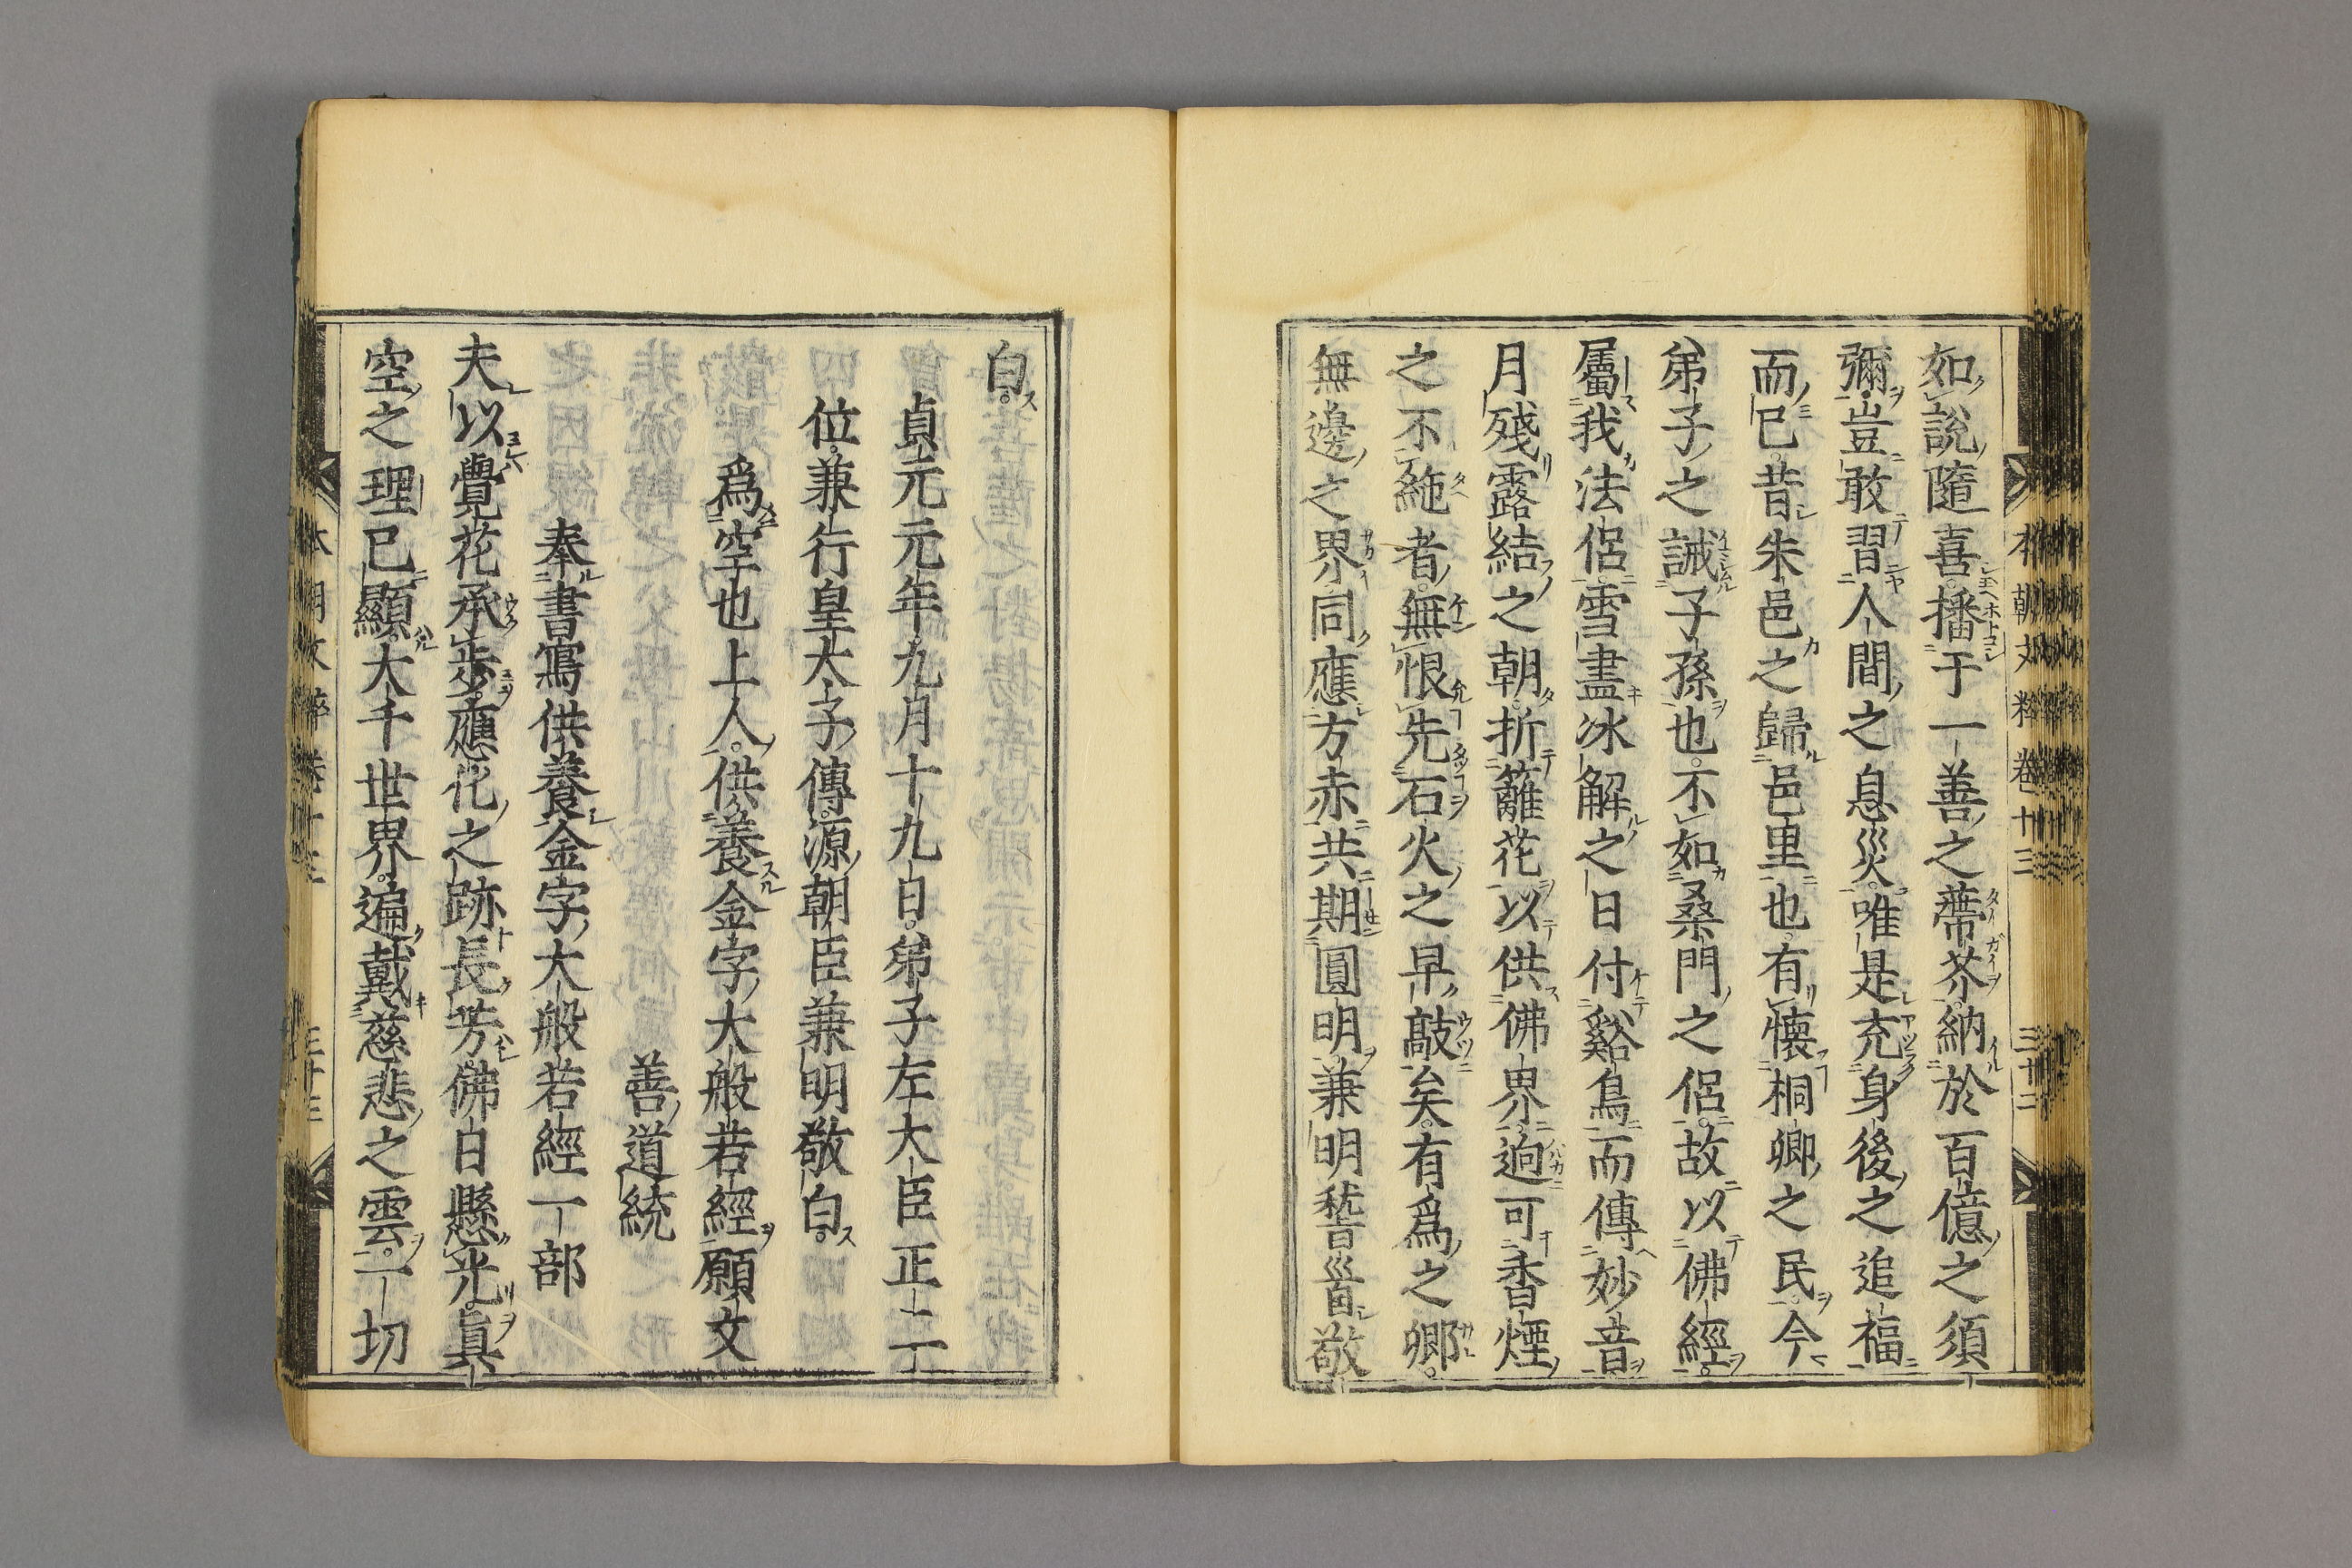 本朝文粹卷十三
三十二
如説隨喜。播于一善之蔕芥。納於百億之須
彌。豈敢習人間之息災。唯是充身後之追福
而已。昔朱邑之歸邑里也。有懷桐卿之民。今
弟子之誡子孫也。不如桑門之侶。故以佛經。
屬我法侶。雪盡氷解之日。付谿鳥而傳妙音。
月殘露結之朝。折籬花以供佛界。逈可香煙
之不絁者。無恨先石火之早敲矣。有爲之鄕。
無邊之界。同應方赤。共期圓明。兼明嵇首敬
白。
貞元元年九月十九日。弟子左大臣正二
位兼行皇太子傳源朝臣兼明敬白。
爲空也上人。供養金字大般若經願文
善道統
奉書寫供養金字大般若經一部
夫以覺花承步。應化之跡長芳。佛日懸光。眞
空之理已顯。大千世界。遍戴慈悲之雲。一切